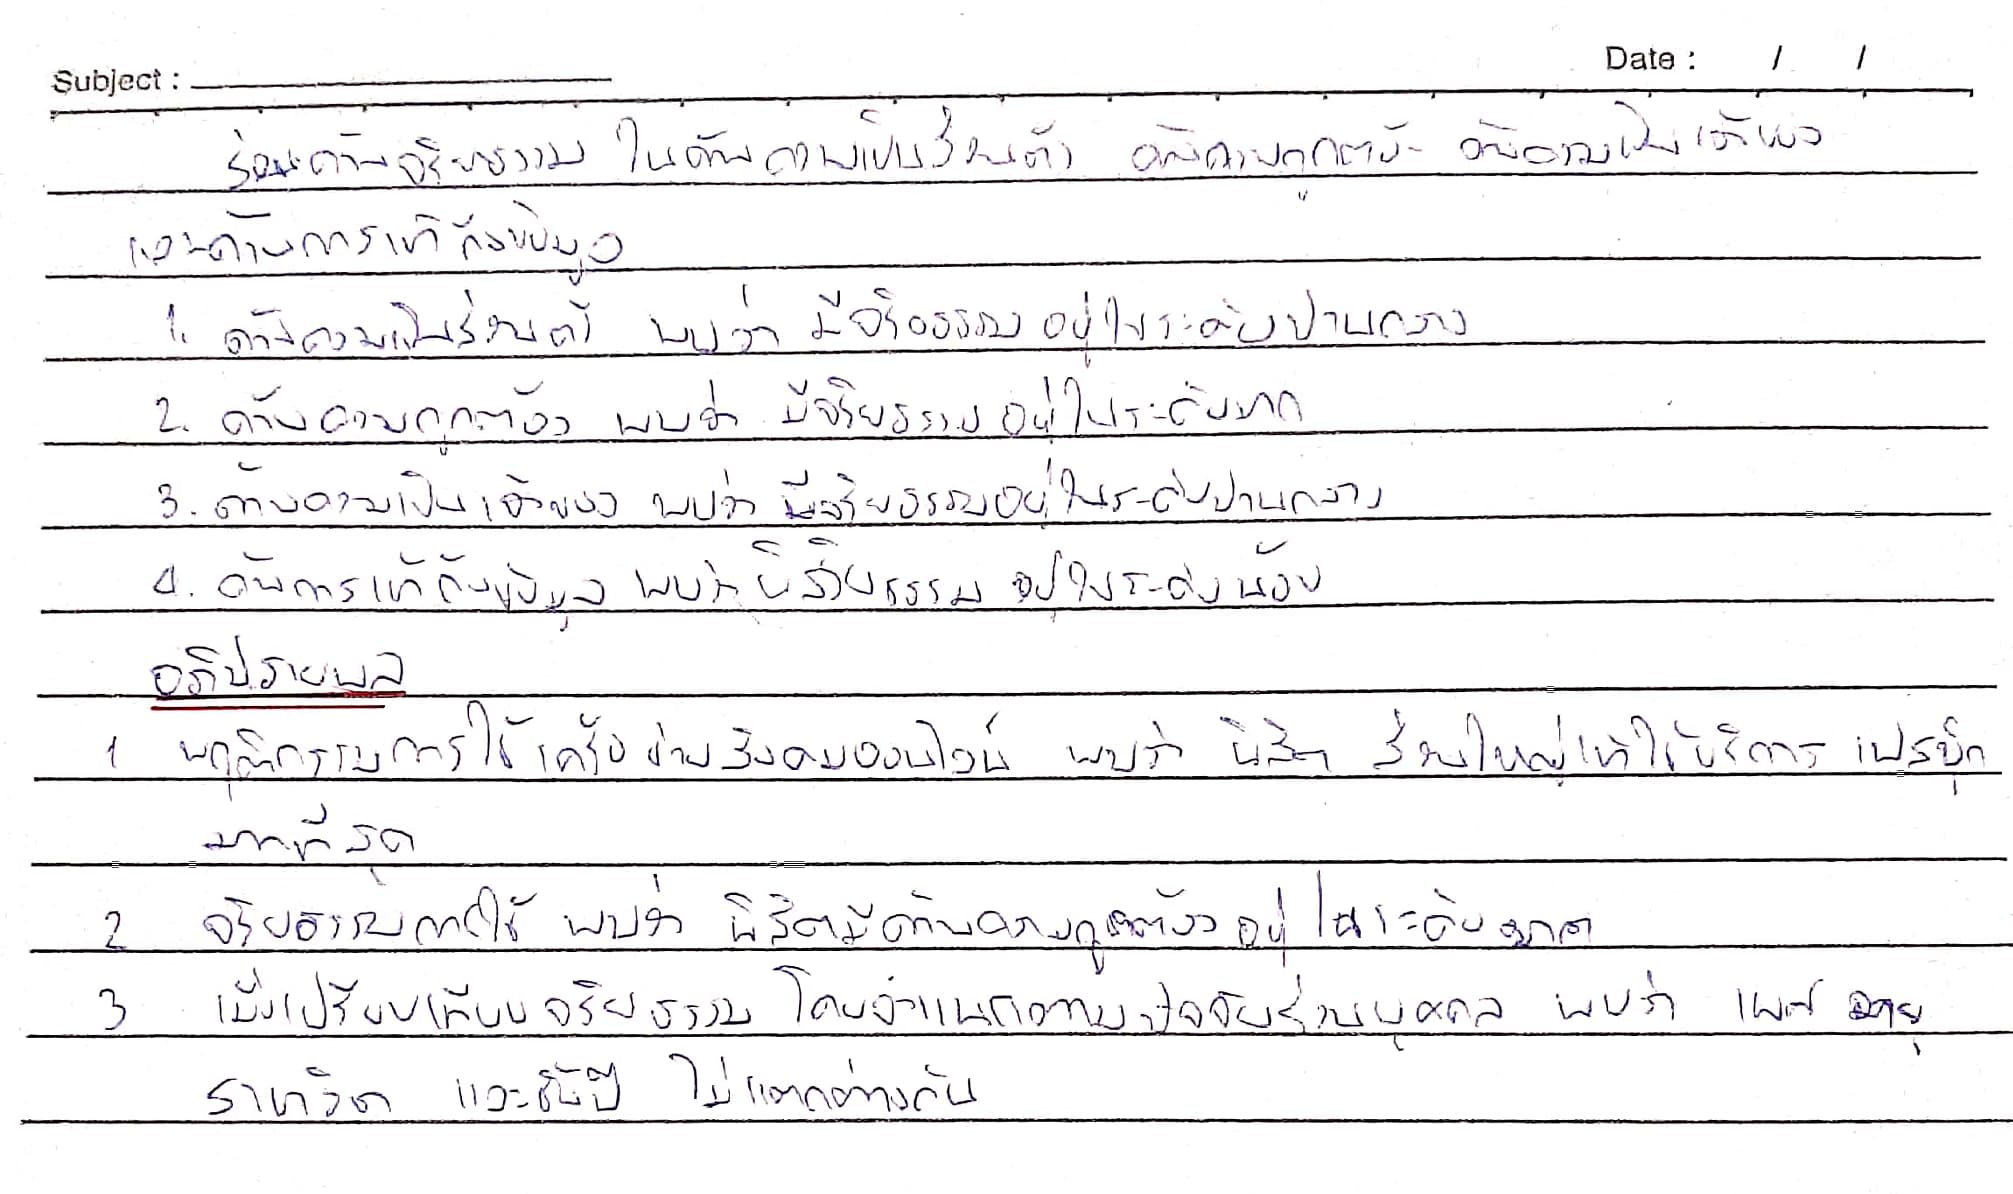 Subject : Date : / /
ด้านจริยธรรม ในด้านความเป็นส่วนตัว ด้านความถูกต้อง ด้านความเป็นเจ้าของ
และด้านการเข้าถึงข้อมูล
1. ด้านความเป็นส่วนตัว พบว่า มีจริยธรรมอยู่ในระดับปานกลาง
2. ด้านความถูกต้อง พบว่า มีจริยธรรมอยู่ในระดับมาก
3. ด้านความเป็นเจ้าของ พบว่า มีจริยธรรมอยู่ในระดับปานกลาง
4. ด้านการเข้าถึงข้อมูล พบว่า มีจริยธรรม อยู่ในระดับน้อย
อภิปรายผล
1 พฤติกรรมการใช้เครือข่ายสังคมออนไลน์ พบว่า นิสิต ส่วนใหญ่เข้าใช้บริการ เฟรซบุ๊ก
มากที่สุด
2 จริยธรรมการใช้ พบว่า นิสิตมีด้านความถูกต้อง อยู่ ในระดับ มาก
3 เมื่อเปรียบเทียบจริยธรรม โดยจำแนกตามปัจจัยส่วนบุคคล พบว่า เพศ อายุ
รายวิชา และชั้นปี ไม่แตกต่างกัน